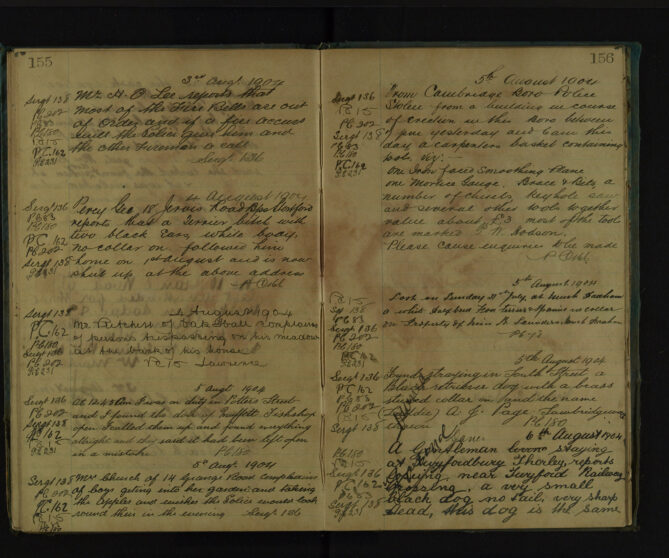 155
3rd Augt 1904
Sergt 138
PC 202
PC 83
PC 180
Pc 15
PC 162
PC 231
Mr H. O. Lee reports that
most of the Fire Bells are out
of Order and if a fire occurs
will the Police give him and
the other Firemen a call
Sergt 136
4 August 1904
Sergt 136
PC 83
PC 180
PC 162
PC 202
Sergt 138
PC 231
Percy Geo 18 Jervis Road Bps Stortford
reports that a Terrier bitch with
two black Ears white body
no collar on followed him
home on 1st August and is now
shut up at the above address
4 August 1904
Sergt 138
PC 162
PC 180
Sergt 136
PC 202
PC 231
Mr Pritchers of Oak Hall Complains
of persons trespassing on his meadow
at the back of his house
Pc 15 Lawrence
5 Augt 1904
Sergt 136
PC 202
Sergt 138
PC 162
Pc 15
PC 231
At 12.45 Am I was on duty in Potters Street
and I found the door of Graffitt Fishshop
open I called them up and found everything
alright and they said it had been left open
in a mistake PC 180
5th Augt 1904
Sergt 138
PC 202
Sergt 136
PC 162
Mrs Church of 14 Grange Road complains
of boys getting into her garden and taking
the Apples and wishes the Police would look
round there in the evening Sergt 136
156
5th August 1904
Sergt 136
Pc 15
PC 202
Sergt 138
PC 83
PC 180
PC 162
PC 231
From Cambridge Boro Police
Stolen from a building in course
of erection in this Boro between
5 pm yesterday and 6 am this
day a carpenters basket containing
tools viz:-
One Iron faced Smoothing Plane
one Mortice Gauge, Brace & Bits, a
number of Chisels, Keyhole saw
and several other tools together
value about £3 most of the tools
are marked W. Hodson.
Please cause enquiries to be made
5th August 1904
Pc 15
Sgt 138
PC 83
Sergt 136
PC 202
PC 180
PC 162
PC 231
Lost on Sunday 31st July, at Much Hadham
a white Dog no collar
on Property of Miss Saunders Much Hadham
5th August 1904
Sergt 136
PC 162
PC 83
PC 202
Pc 15
Sergt 138
Found straying in South Street a
Black retriever dog with a brass
studded collar on and the name
A. J. Page, Sawbridgeworth
thereon PC 180
6th August 1904
PC 180
PC 202
Sergt 136
PC 162
PC 83
Sergt 138
PC 231
A Gentleman staying
at Twyfordbury Thorley, reports
losing, near Twyford Railway
crossing, a very small
black dog no tail, very sharp
head, this dog is the same